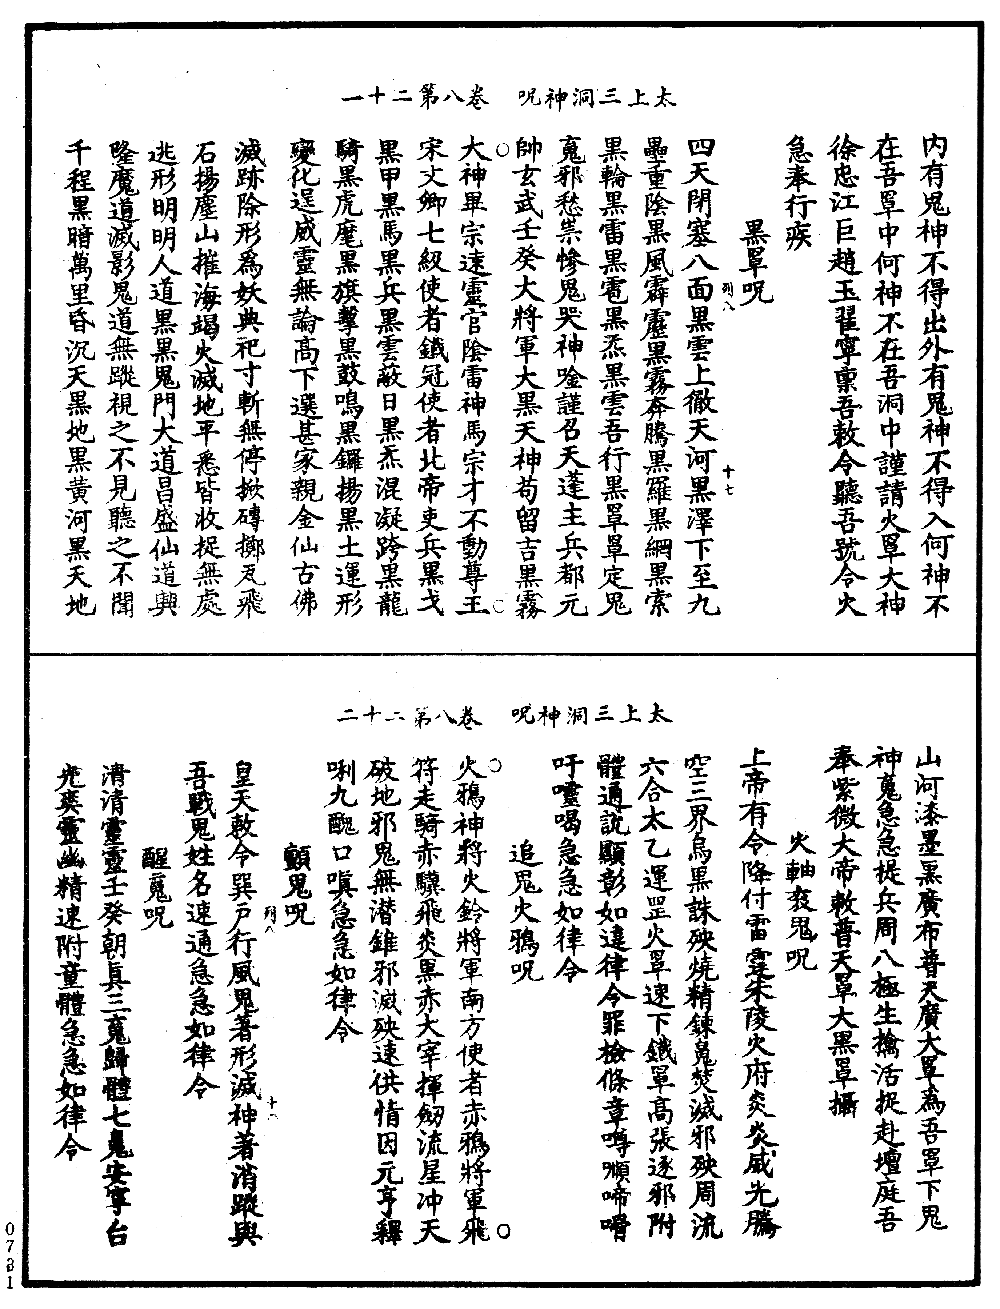 太上三洞神呪　卷八第二十一
内有鬼神不得出外有鬼神不得入何神不
在吾罩中何神不在吾洞中謹請火罩大神
徐忠江巨趙玉翟寧稟吾敕令聽吾號令火
急奉行疾
黑罩呪
四天閉塞八面黑雲上徹天河黑澤下至九
壘重陰黑風霹靂黑霧奔騰黑羅黑網黑索
黑輪黑雷黑雹黑炁黑雲吾行黑罩罩定鬼
䰟邪愁祟慘鬼哭神唫謹召天蓬主兵都元
帥玄武壬癸大將軍大黑天神苟留吉黑霧
大神畢宗遠靈官陰雷神馬宗才不動尊王
宋丈卿七級使者鐵冠使者北帝吏兵黑戈
黑甲黑馬黑兵黑雲蔽日黑炁混凝跨黑龍
騎黑虎麾黑旗擊黑鼓鳴黑鑼揚黑土運形
變化逞威靈無論高下選甚家親金仙古佛
滅跡除形爲妖典祀寸斬無停掀磚擲瓦飛
石揚塵山摧海竭火滅地平悉皆收捉無處
逃形明明人道黑黑鬼門大道昌盛仙道興
隆魔道滅影鬼道無蹤視之不見聽之不聞
千程黑暗萬里昏沉天黑地黑黄河黑天地
太上三洞神呪　卷八第二十二
山河漆墨黑廣布普天廣大罩為吾罩下鬼
神䰟急急提兵周八極生擒活捉赴壇庭吾
奉紫微大帝敕普天罩大黑罩攝
火軸衮鬼呪
上帝有令降付雷霆朱陵火府炎炎威光騰
空三界烏黑誅殃燒精鍊鬼焚滅邪殃周流
六合太乙運罡火罩速下鐵罩高張逐邪附
體通説顯彰如違律令罪檢條章噂嚬啼㗖
吁嚧喝急急如律令
追鬼火鴉呪
火鴉神將火鈴將軍南方使者赤鴉將軍飛
符走騎赤驥飛炎黑赤大宰揮劒流星冲天
破地邪鬼無潜錐邪滅殃速供情因元亨釋
唎九醜口嗔急急如律令
顫鬼呪
皇天敕令巽户行風鬼著形滅神著消蹤與
吾戰鬼姓名速通急急如律令
醒䰟呪
清清靈靈壬癸朝眞三䰟歸體七魄安寧台
光爽靈幽精速附童體急急如律令
0731